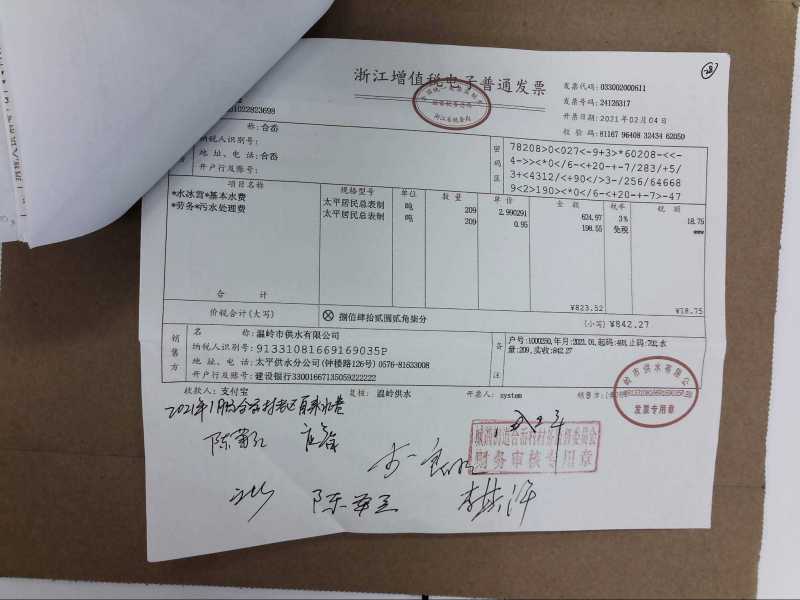 浙江增值税电子普通发票
发票代码: 033002000611
发票号码: 24126317
开票日期: 2021年02月04日
校验码: 81167 96408 32434 62050
01022823698
称: 合岙
纳税人识别号:
地址、电话: 合岙
开户行及账号:
密码区
78208>0<027<-9+3>*60208-<<-
4->><*0</6-<+20-+-7/283/+5/
3+<4312/<+90</>3-/256/64668
9<2>190><*0</6-<+20-+-7>-47
项目名称 规格型号 单位 数量 单价 金额 税率 税额
*水冰雪*基本水费 太平居民总表制 吨 209 2.990291 624.97 3% 18.75
*劳务*污水处理费 太平居民总表制 吨 209 0.95 198.55 免税 ***
合计 ¥823.52 ¥18.75
价税合计(大写) ⊗ 捌佰肆拾贰圆贰角柒分 (小写) ¥842.27
销售方
名称: 温岭市供水有限公司
纳税人识别号: 91331081669169035P
地址、电话: 太平供水分公司(钟楼路126号) 0576-81633008
开户行及账号: 建设银行33001667135059222222
备注
户号:1000250,年月:2021.01,起码:493,止码:702,水
量:209,实收:842.27
收款人: 支付宝 复核: 温岭供水 开票人: system 销售方:
发票专用章
财务审核专用章